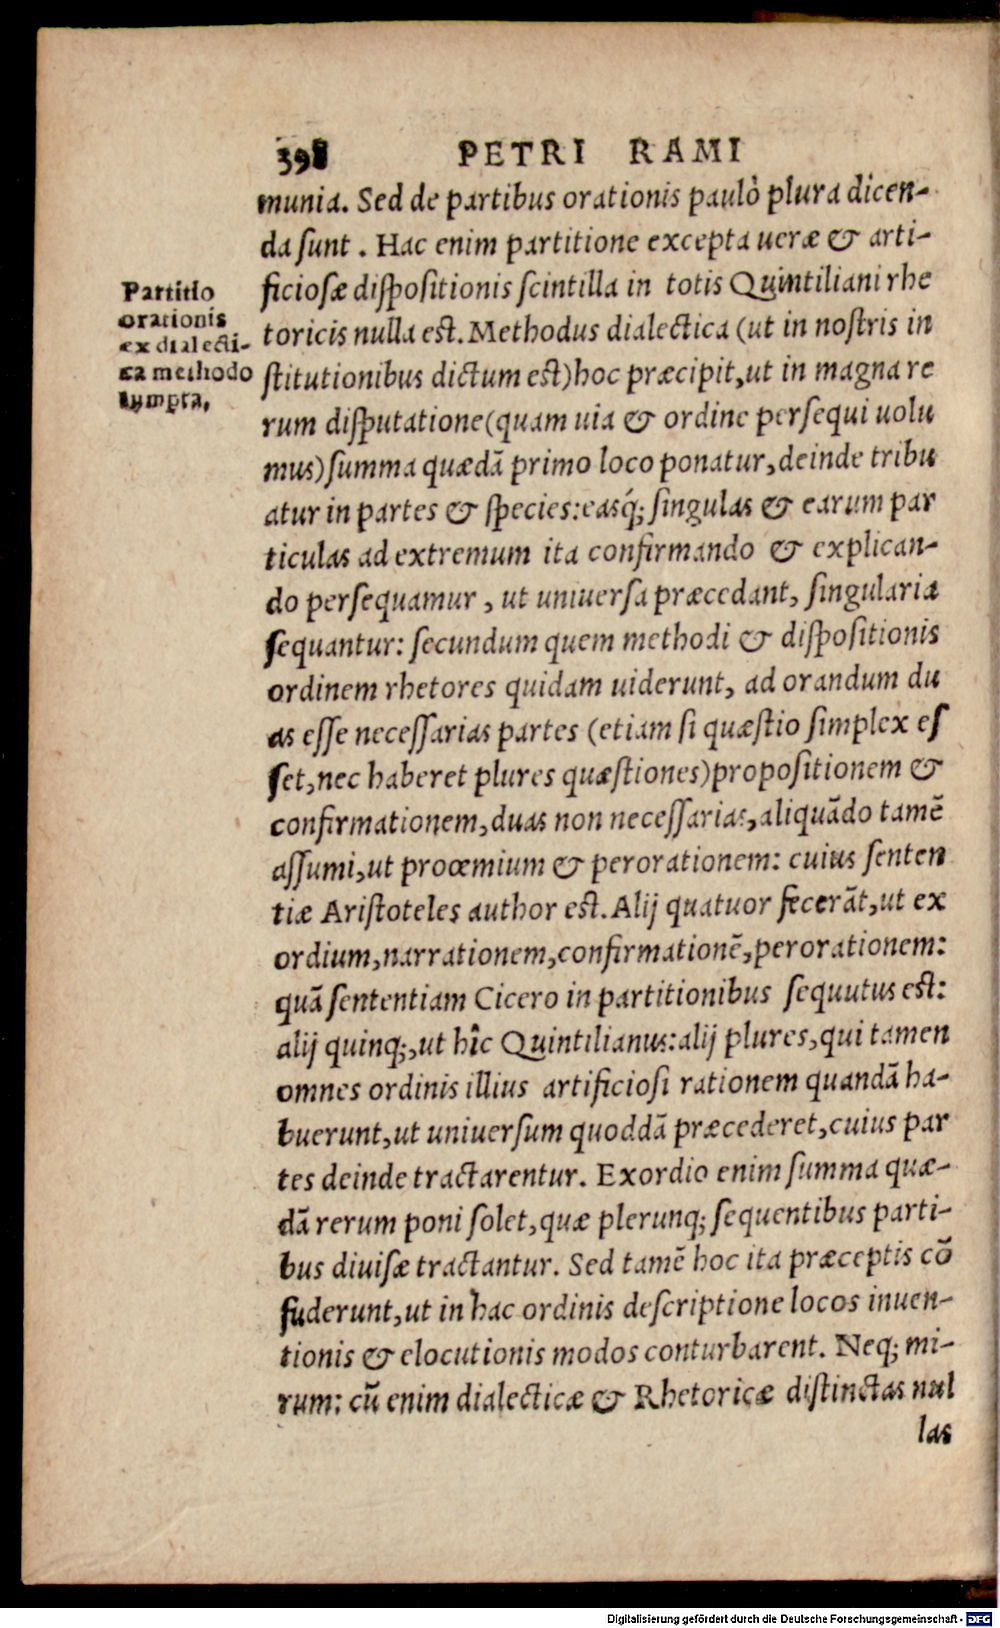 398 PETRI RAMI
munia. Sed de partibus orationis paulò plura dicen-
da sunt. Hac enim partitione excepta ueræ & arti-
ficiosæ dispositionis scintilla in totis Quintiliani rhe
toricis nulla est. Methodus dialectica (ut in nostris in
stitutionibus dictum est) hoc præcipit, ut in magna re
rum disputatione (quam uia & ordine persequi uolu
mus) summa quædã primo loco ponatur, deinde tribu
atur in partes & species: easq́; singulas & earum par
ticulas ad extremum ita confirmando & explican-
do persequamur, ut uniuersa præcedant, singularia
sequantur: secundum quem methodi & dispositionis
ordinem rhetores quidam uiderunt, ad orandum du
as esse necessarias partes (etiam si quæstio simplex es
set, nec haberet plures quæstiones) propositionem &
confirmationem, duas non necessarias, aliquãdo tamẽ
assumi, ut proœmium & perorationem: cuius senten
tiæ Aristoteles author est. Alij quatuor fecerãt, ut ex
ordium, narrationem, confirmationẽ, perorationem:
quã sententiam Cicero in partitionibus sequutus est:
alij quinq;, ut hîc Quintilianus: alij plures, qui tamen
omnes ordinis illius artificiosi rationem quandã ha-
buerunt, ut uniuersum quoddã præcederet, cuius par
tes deinde tractarentur. Exordio enim summa quæ-
dã rerum poni solet, quæ plerunq; sequentibus parti-
bus diuisæ tractantur. Sed tamẽ hoc ita præceptis cõ
fuderunt, ut in hac ordinis descriptione locos inuen-
tionis & elocutionis modos conturbarent. Neq; mi-
rum: cũ enim dialecticæ & Rhetoricæ distinctas nul
las
Partitio
orationis
ex dialecti-
ca methodo
sumpta,
Digitalisierung gefördert durch die Deutsche Forschungsgemeinschaft - DFG